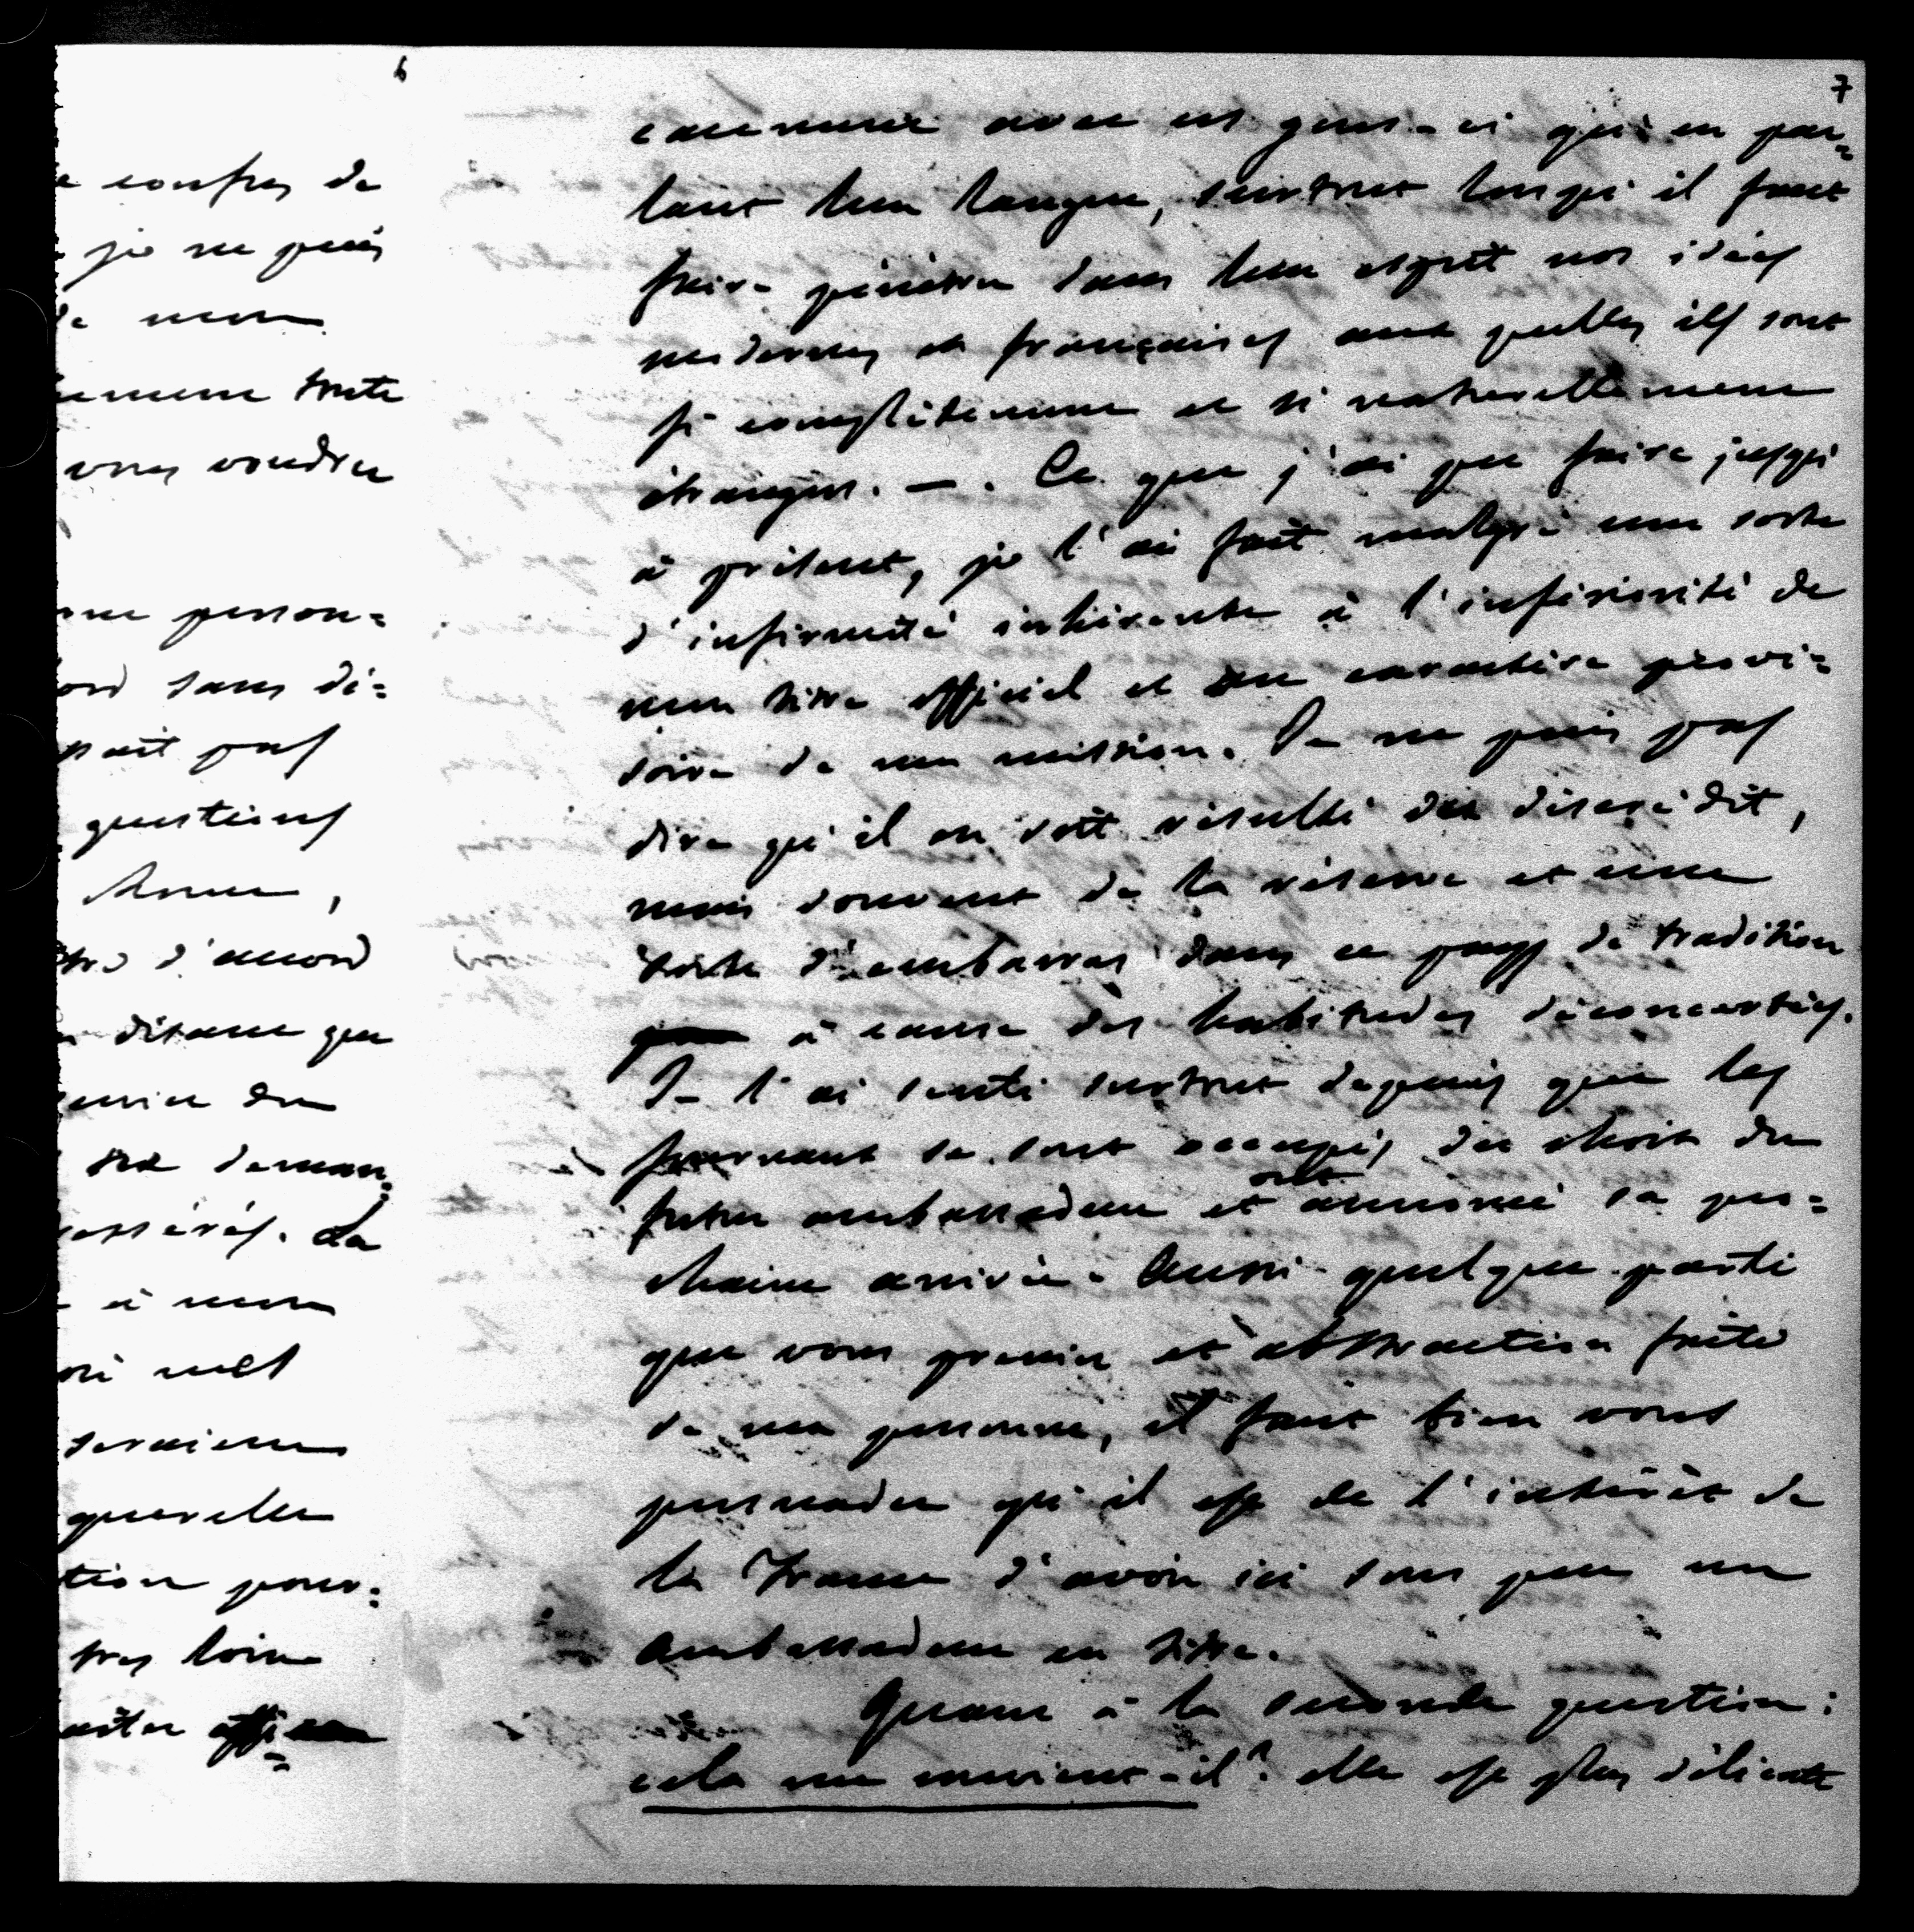 6
confrs de
je ne puis
de mon
toute
vous voudrez
person=
sans di=
sait pas
questions
Rome,
d'accord
distance que
du
deman=
La
à mon
nuls
seraient
quereller
tion pour=
très loin
7
commune avec ces gens-ci qu'en par=
lant leur langue, surtout lorsqu'il faut
faire pénétrer dans leur esprit nos idées
modernes et françaises aux quelles ils sont
si complètement et si naturellement
étrangers. —. Ce que j'ai pu faire jusqu'
à présent, je l'ai fait malgré une sorte
d'infirmité inhérente à l'infériorité de
mon titre officiel et au caractère provi=
soire de ma mission. Je ne puis pas
dire qu'il en soit résulté du discrédit,
mais souvent de la réserve et une
sorte d'embarras dans ce pays de tradition
à cause des habitudes déconcertées.
Je l'ai senti surtout depuis que les
journaux se sont occupés du choix du
futur ambassadeur et ont annoncé sa pro=
chaine arrivée. Aussi quelque parti
que vous preniez et abstraction faite
de ma personne, il faut bien vous
persuader qu'il est de l'intérêt de
la France d'avoir ici sous peu un
ambassadeur en titre.
Quant à la seconde question:
cela me convient-il? elle est plus délicate